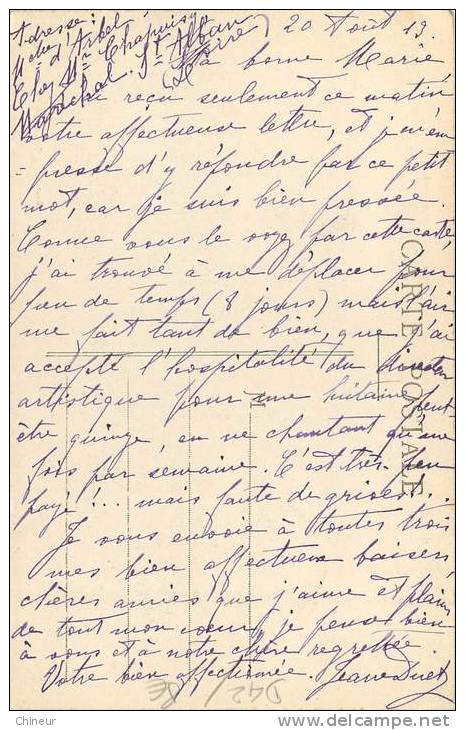 Adresse:
Mme d'Arbel
Chez Mr Chapuis
Maréchal. St Alban
(Loire)
20 Août 19.
Ma bonne Marie
J'ai reçu seulement ce matin
votre affectueuse lettre, et je m'em
= presse d'y répondre par ce petit
mot, car je suis bien pressée.
Comme vous le voyez par cette carte,
j'ai trouvé à me déplacer pour
peu de temps (8 jours) mais l'air
me fait tant de bien, que j'ai
accepté l'hospitalité du directeur
artistique pour une huitaine peut-
être quinze, en ne chantant qu'une
fois par semaine. C'est très peu
payé !... mais faute de grives...
Je vous envoie à toutes trois
mes bien affectueux baisers,
chères amies que j'aime et plains
de tout mon cœur, je pense bien
à vous et à notre chère regrettée.
Votre bien affectionnée. Jeanne
CARTE POSTALE
M
D42
Chineur
www.delcampe.net